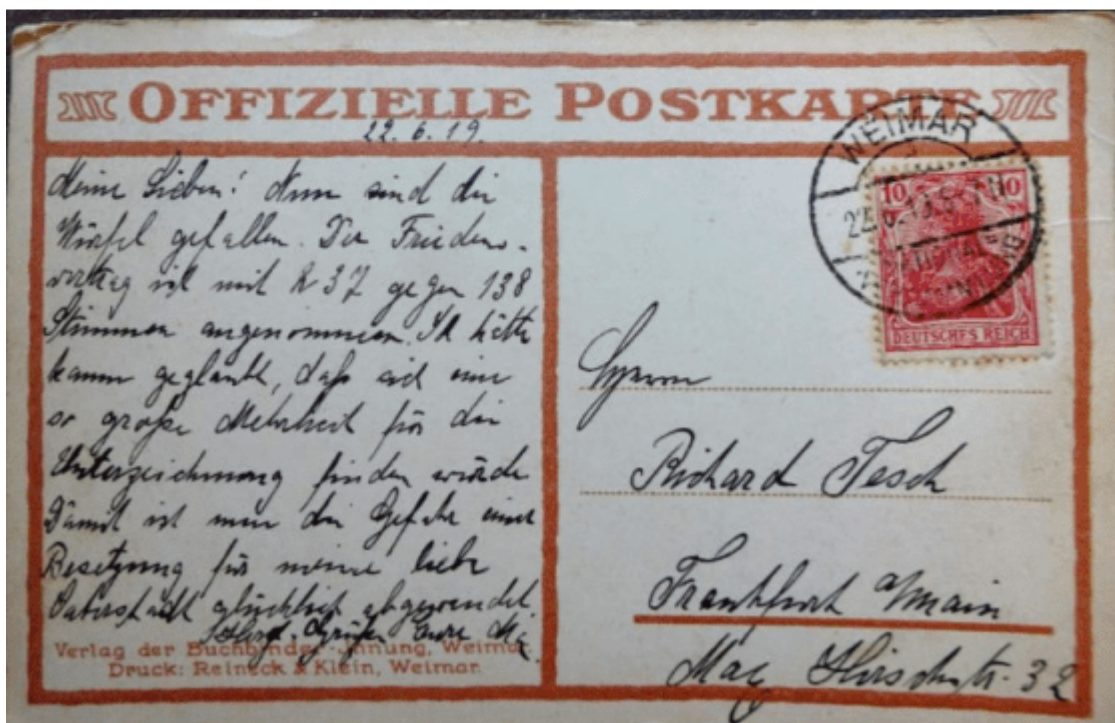 OFFIZIELLE POSTKARTE
22.6.19.
Meine Lieben! Nun sind die
Würfel gefallen. Der Friedens-
vertrag ist mit 237 gegen 138
Stimmen angenommen. Ich hätte
kaum geglaubt, daß sich eine
so große Mehrheit für die
Unterzeichnung finden würde
Damit ist nun die Gefahr einer
Besetzung für meine liebe
Vaterstadt glücklich abgewendet.
Herzl. Grüße Eure
Verlag der Buchbinder-Innung, Weimar.
Druck: Reineck & Klein, Weimar.
WEIMAR
10 10
DEUTSCHES REICH
Herrn
Richard Tesch
Frankfurt a/Main
Hirschstr. 32